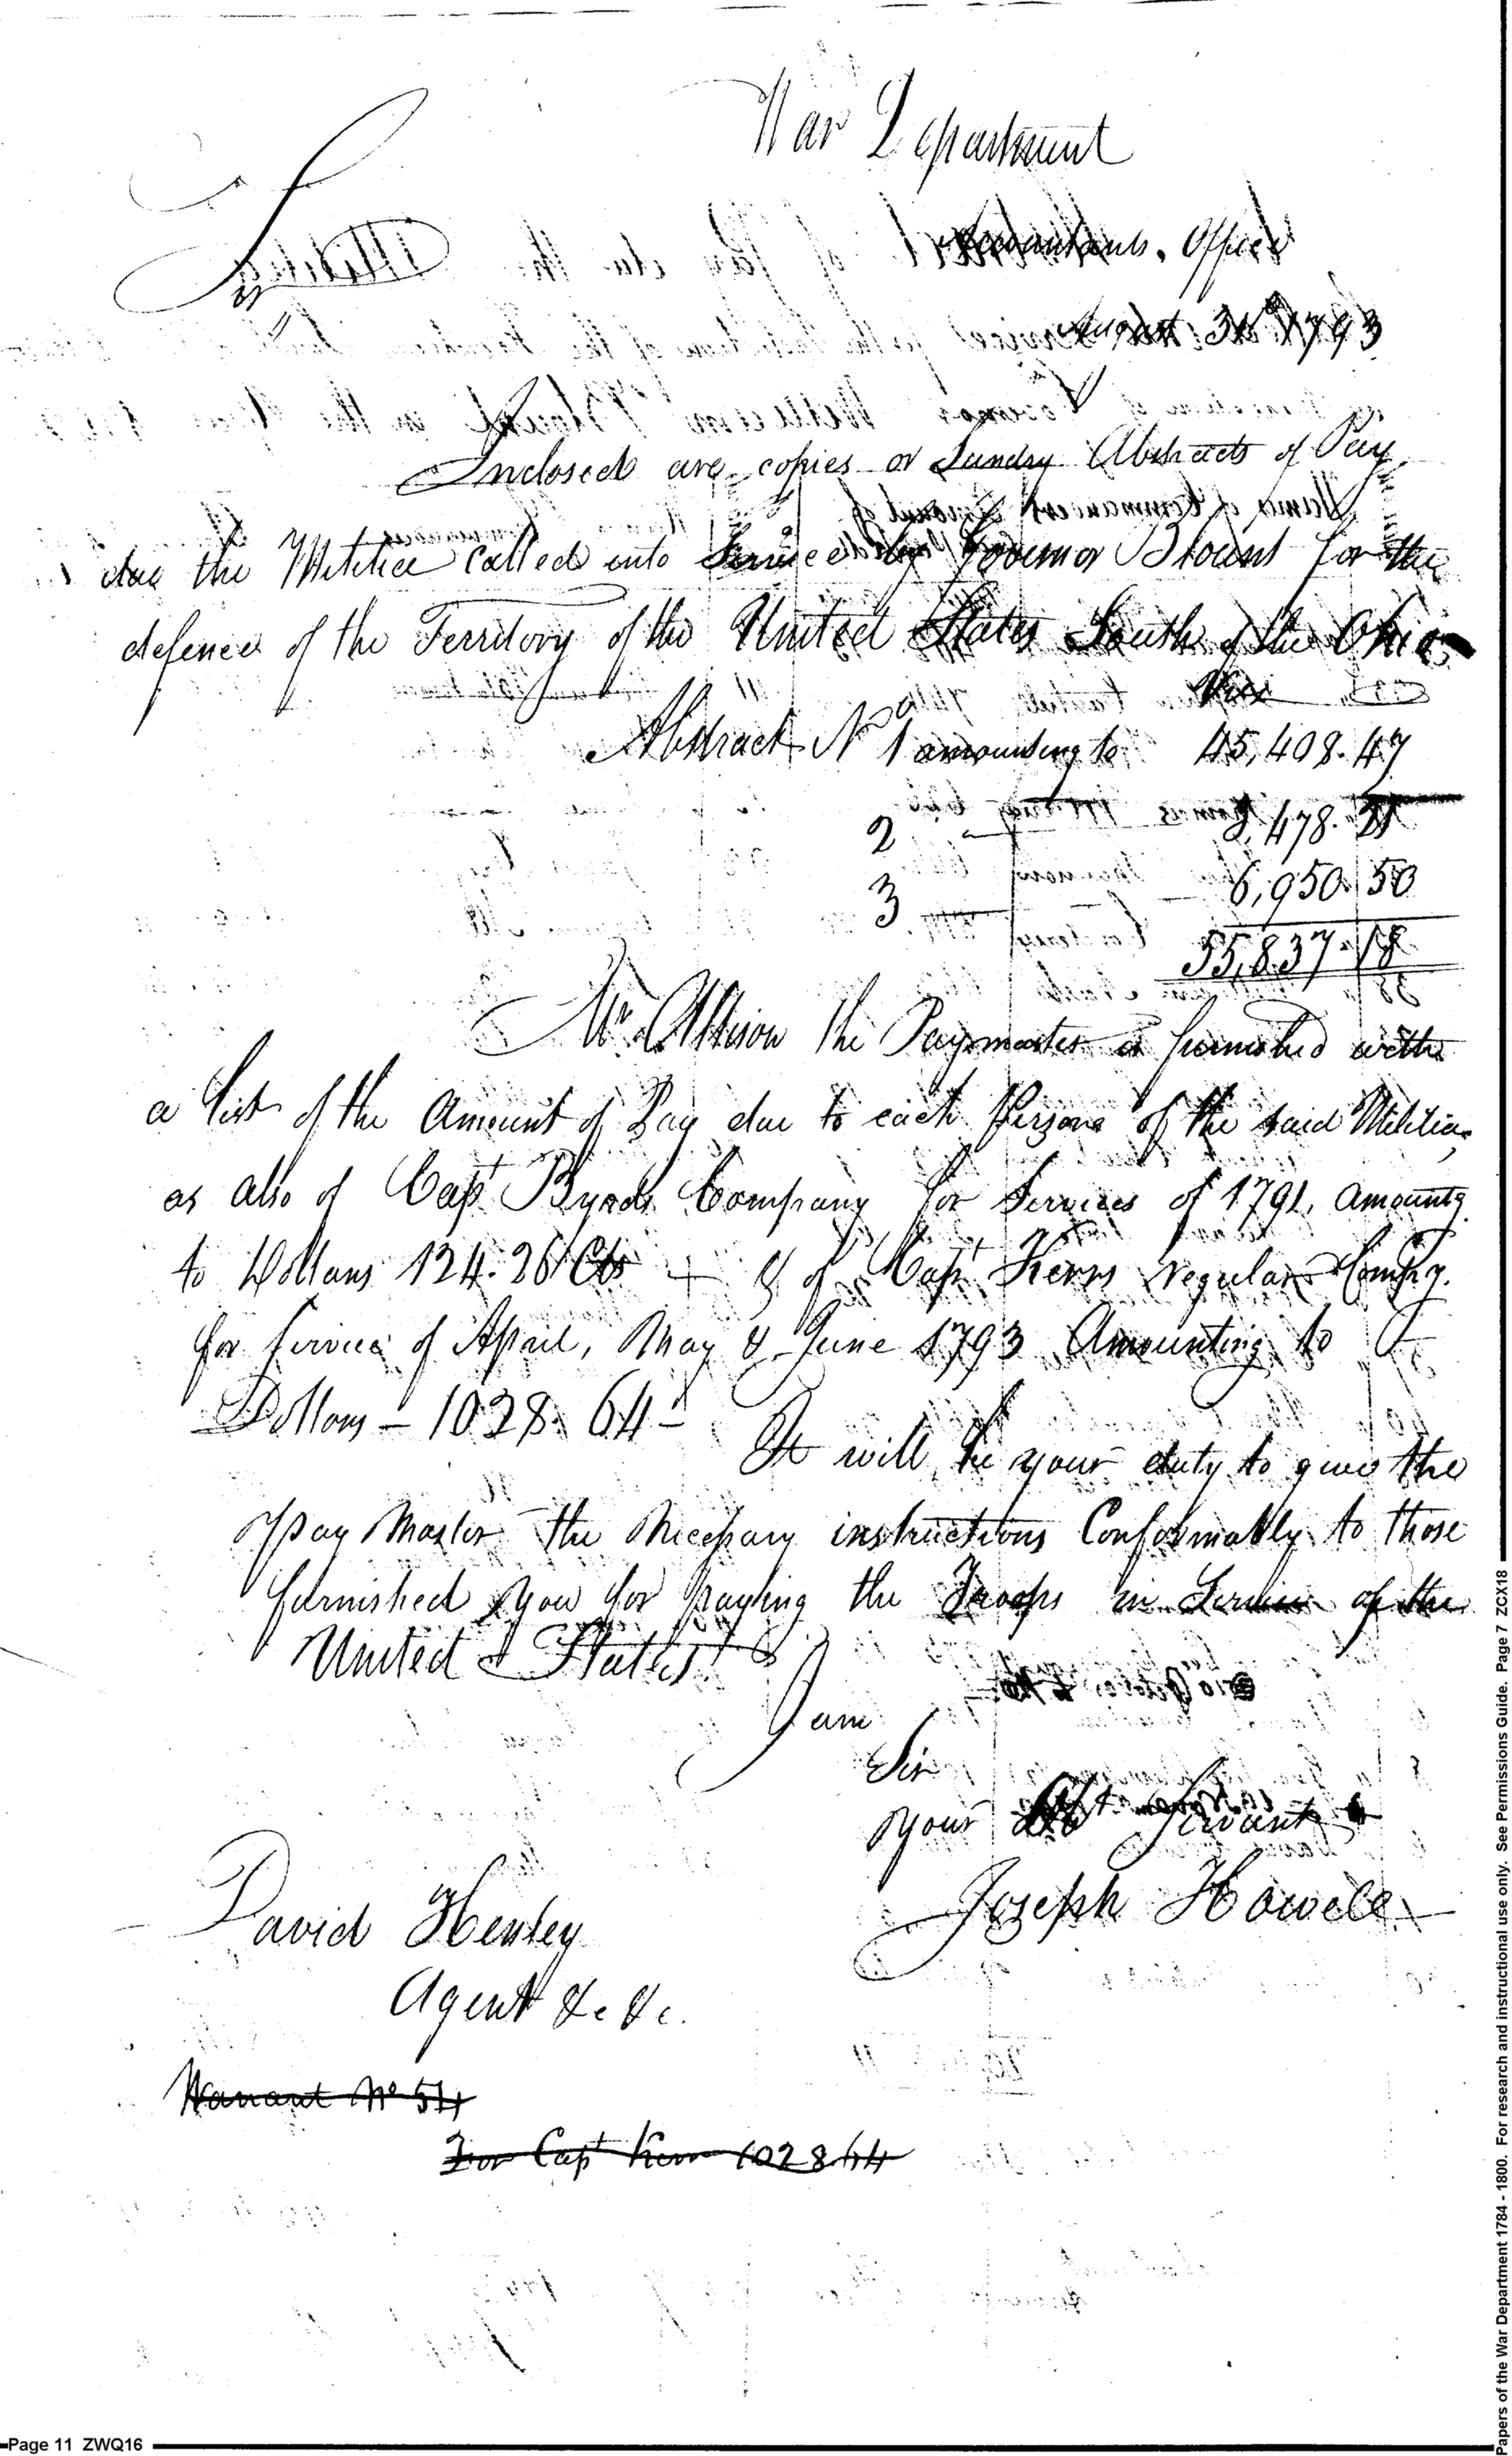 War Department
Accountants. Office
August 31st 1793
Sir
Inclosed are copies of Sundry Abstracts of Pay
due the Militia called into Service by Governor Blount for the
defence of the Territory of the United States South of the Ohio
Viz
Abstract No 1 amounting to 45,408.47
2 — 3,478.21
3 — 6,950.50
55,837.18
Mr. Allison the Paymaster is furnished with
a list of the Amount of Pay due to each Person of the said Militia
as also of Capt Byrds Company for Services of 1791, amountg
to Dollars 124.26 Cts & of Capt Kerrs regular Compy.
for service of April, May & June 1793 Amounting to
Dollars – 1028.64 –
It will be your duty to give the
Pay Master the Necessary instructions Conformably to those
furnished you for paying the Troops in Service of the
United States
I am
Sir
your Obt Servant
Joseph Howell
David Henley
Agent &c &c.
Warrant No 54
For Capt Kerr 1028 64
Page 11 ZWQ16
Papers of the War Department 1784 - 1800. For research and instructional use only. See Permissions Guide. Page 7 ZCX18